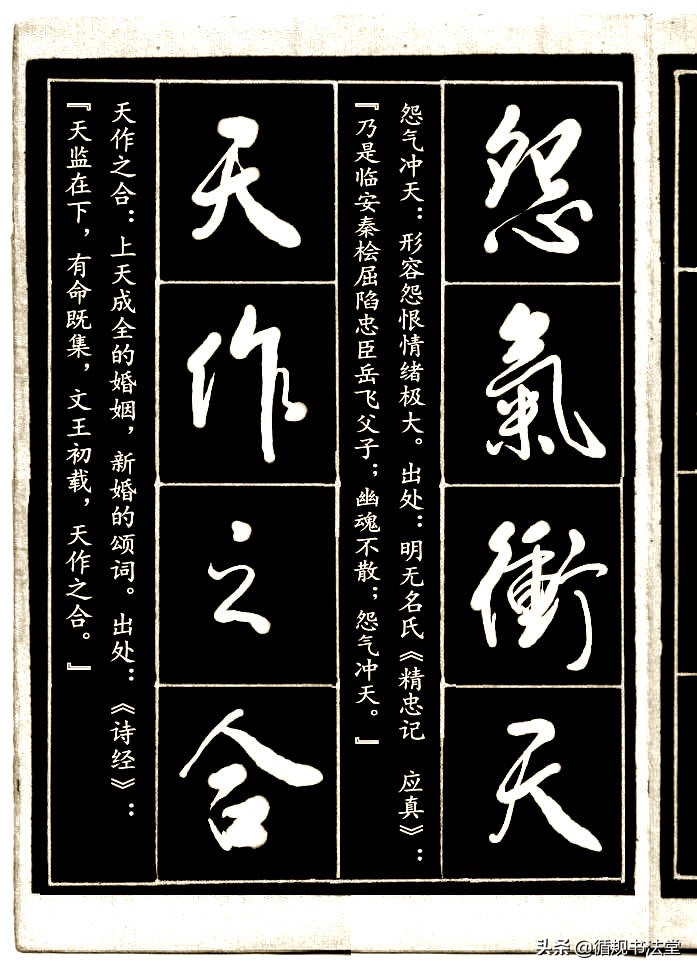 怨氣衝天
怨气冲天：形容怨恨情绪极大。出处：明无名氏《精忠记 应真》：
『乃是临安秦桧屈陷忠臣岳飞父子；幽魂不散；怨气冲天。』
天作之合
天作之合：上天成全的婚姻，新婚的颂词。出处：《诗经》：
『天监在下，有命既集，文王初载，天作之合。』
头条 @循规书法堂